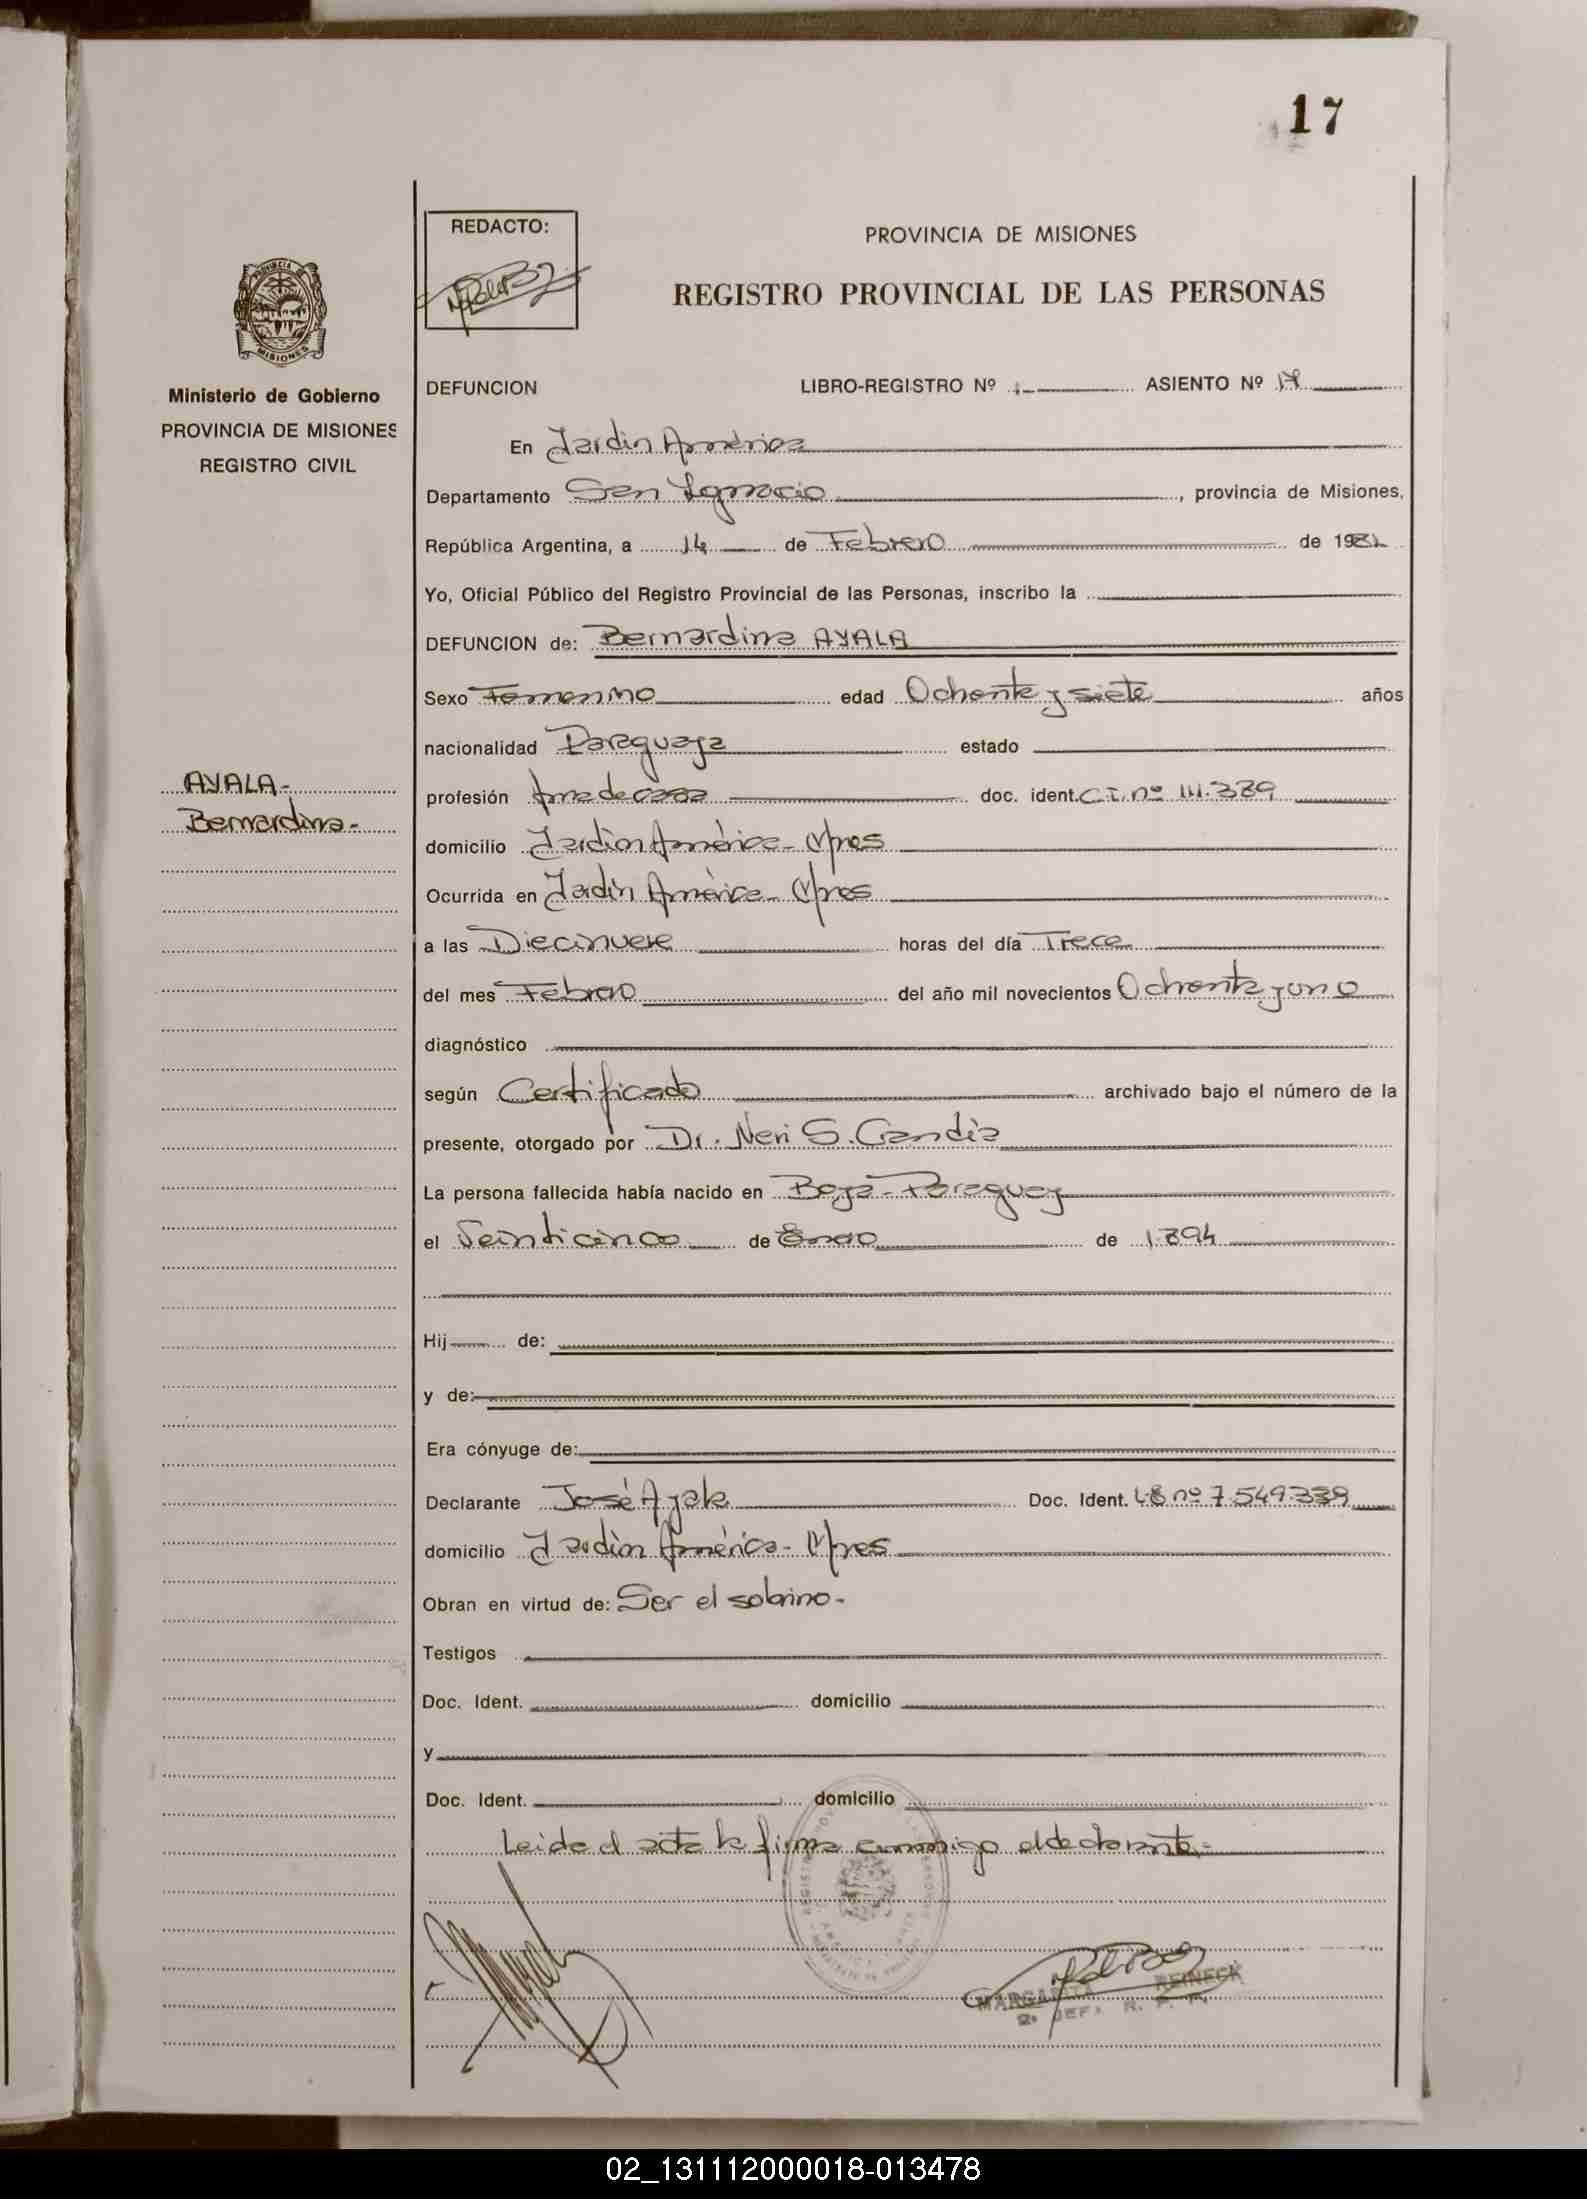 17
REDACTO:
PROVINCIA DE MISIONES
REGISTRO PROVINCIAL DE LAS PERSONAS
PROVINCIA DE
MISIONES
Ministerio de Gobierno
PROVINCIA DE MISIONES
REGISTRO CIVIL
DEFUNCION LIBRO-REGISTRO Nº 1 ASIENTO Nº 17
En Jardín América
Departamento San Ignacio, provincia de Misiones,
República Argentina, a 14 de Febrero de 1981
Yo, Oficial Público del Registro Provincial de las Personas, inscribo la
DEFUNCION de: Bernardina AYALA
Sexo Femenino edad Ochenta y siete años
nacionalidad Paraguaya estado
AYALA-
Bernardina-
profesión Ama de casa doc. ident. C.I. nº 111.389
domicilio Jardín América- Mnes
Ocurrida en Jardín América- Mnes
a las Diecinueve horas del día Trece
del mes Febrero del año mil novecientos Ochenta y uno
diagnóstico
según Certificado archivado bajo el número de la
presente, otorgado por Dr. Neri S. Candia
La persona fallecida había nacido en - Paraguay
el Veinticinco de Enero de 1.894
Hij de:
y de:
Era cónyuge de:
Declarante José Ayala Doc. Ident. nº 7.549.339
domicilio Jardín América- Mnes
Obran en virtud de: Ser el sobrino-
Testigos
Doc. Ident. domicilio
y
Doc. Ident. domicilio
Leida el acta la firma conmigo el declarante.-
MARGARITA REINECK
JEFA R. P. P.
02_131112000018-013478